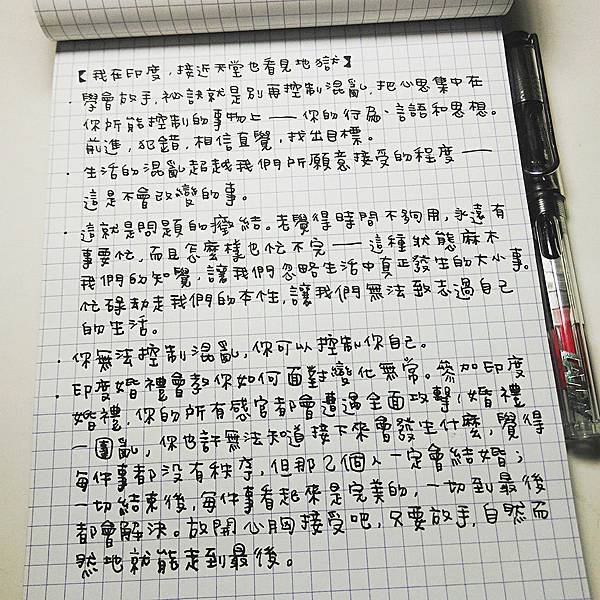 【我在印度,接近天堂也看見地獄】
．學會放手,祕訣就是別再控制混亂,把心思集中在
你所能控制的事物上──你的行為、言語和思想。
前進,犯錯,相信直覺,找出目標。
．生活的混亂超越我們所願意接受的程度──
這是不會改變的事。
．這就是問題的癥結。老覺得時間不夠用,永遠有
事要忙,而且怎麼樣也忙不完──這種狀態麻木
我們的知覺,讓我們忽略生活中真正發生的大小事。
忙碌劫走我們的本性,讓我們無法致志過自己
的生活。
．你無法控制混亂,你可以控制你自己。
．印度婚禮會教你如何面對變化無常。參加印度
婚禮,你的所有感官都會遭遇全面攻擊,婚禮
一團亂,你也許無法知道接下來會發生什麼,覺得
每件事都沒有秩序,但那2個人一定會結婚;
一切結束後,每件事看起來是完美的,一切到最後
都會解決。放開心胸接受吧,只要放手,自然而
然地就能走到最後。